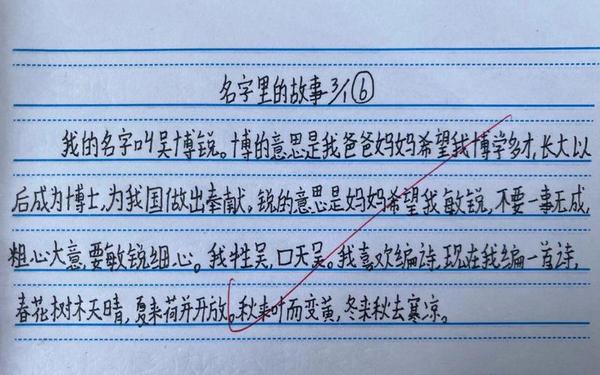 名字里的故事3/1⑥
我的名字叫吴博锐。博的意思是我爸爸妈妈希望我博学多才,长大以
后成为博士,为我国做出奉献。锐的意思是妈妈希望我敏锐,不要一事无成,
粗心大意,要敏锐细心。我牲吴,口天吴。我喜欢编诗,现在我编一首诗,
春花树木天晴,夏来荷并开放。秋来叶而变黄,冬来秋去寒凉。